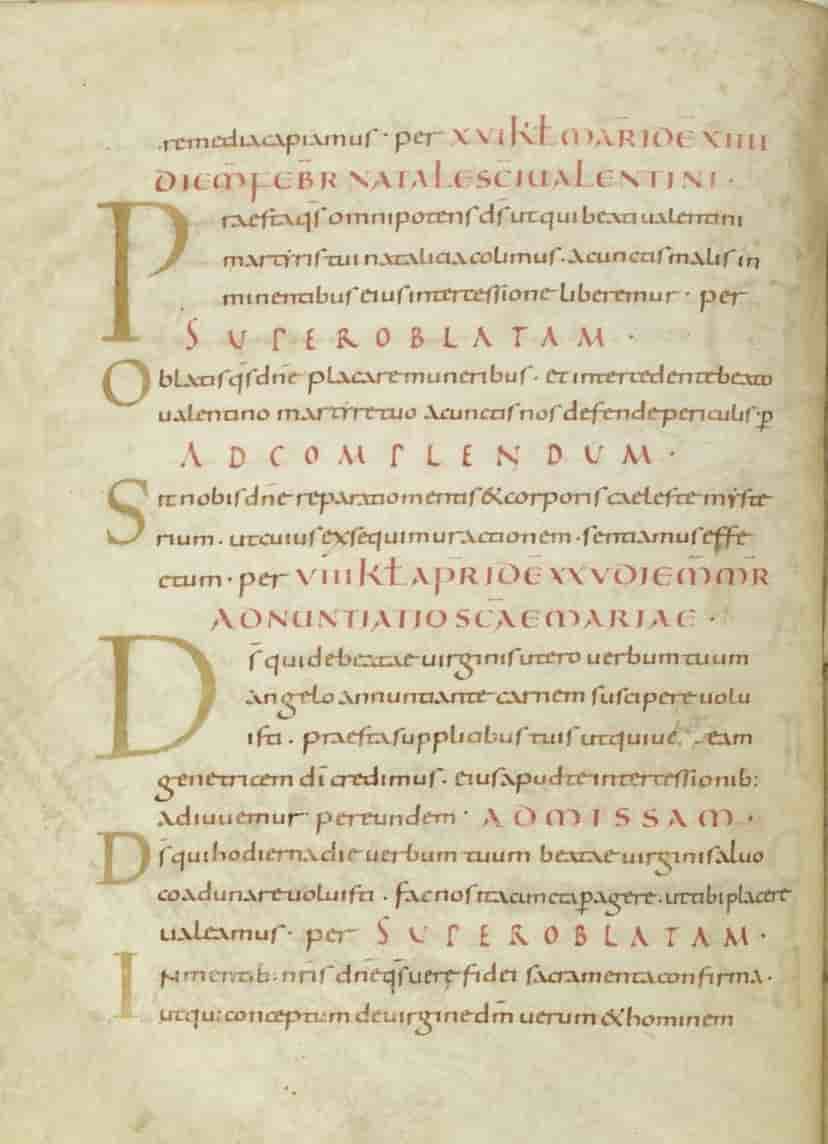 remedia capiamus · per XVI KŁ MAR̄ ID Ē XIIII
DIEM̄ FEB̄R NATALE SC̄I UALENTINI ·
Praesta qs̄ omnipotens ds̄ ut qui beati ualentini
martyris tui natalicia colimus · a cunctis malis in
minentibus eius intercessione liberemur · per
SUPER OBLATAM ·
Oblatis qs̄ dn̄e placare muneribus · et intercedente beato
ualentino martyre tuo a cunctis nos defende periculis · p̱
AD COMPLENDUM ·
Sit nobis dn̄e reparatio mentis & corporis caeleste myste
rium · ut cuius exsequimur actionem · sentiamus effe
ctum · per VIII KŁ AP̄R ID Ē XXV DIEM̄ M̄R
ADNUNTIATIO SC̄AE MARIAE ·
Ds̄ qui de beatae uirginis utero uerbum tuum
angelo annuntiante carnem suscipere uolu
isti · praesta supplicibus tuis ut qui uē eam
genetricem dī credimus · eius apud te intercessionib:
adiuuemur per eundem · AD MISSAM ·
Ds̄ qui hodierna die uerbum tuum beatae uirginis aluo
coadunare uoluisti · fac nos ita cuncta p̱agere · ut tibi placere
ualeamus · per SUPER OBLATAM ·
In mentib · nr̄is dn̄e qs̄ uere fidei sacramenta confirma ·
ut qui conceptum de uirgine dm̄ uerum & hominem